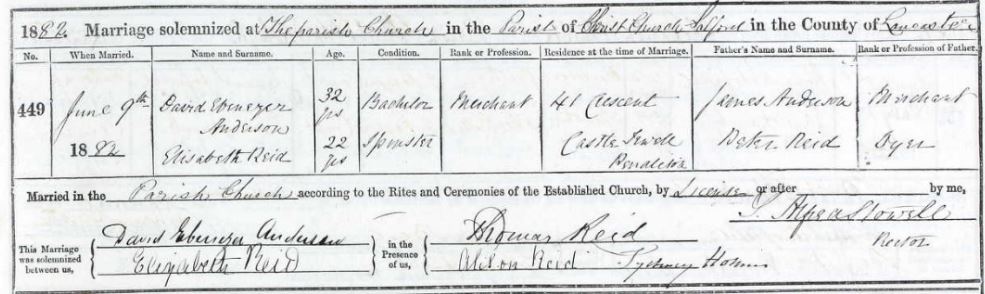 1882. Marriage solemnized at The parish Church in the Parish of Christ Church Salford in the County of Lancaster
No. When Married. Name and Surname. Age. Condition. Rank or Profession. Residence at the time of Marriage. Father's Name and Surname. Rank or Profession of Father.
449 June 9th 1882 David Ebenezer Anderson 32 yrs Bachelor Merchant 41 Crescent James Anderson Merchant
Elisabeth Reid 22 yrs Spinster Castle Irwell Pendleton Peter Reid Dyer
Married in the Parish Church according to the Rites and Ceremonies of the Established Church, by License or after by me,
Stowell
Rector
This Marriage was solemnized between us, David Ebenezer Anderson
Elizabeth Reid
in the Presence of us, Thomas Reid
Alison Reid Sydney